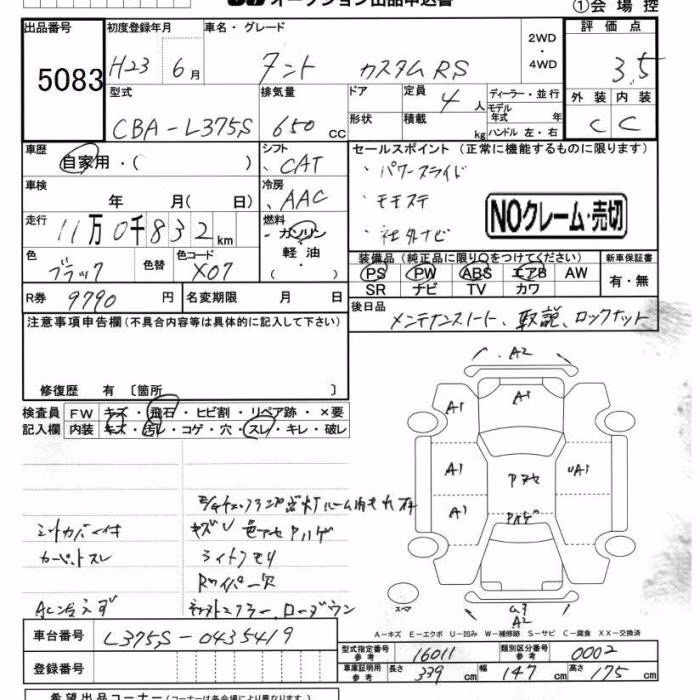 オークション出品申込書
①会場控
出品番号 5083
初度登録年月 H23 6月
車名・グレード タント カスタムRS
2WD・4WD
評価点 3.5
型式 CBA-L375S
排気量 650 cc
ドア
定員 4人
ディーラー・並行
形状
積載 kg
モデル年式 年
ハンドル 左・右
外装 C
内装 C
車歴 自家用・( )
シフト CAT
セールスポイント (正常に機能するものに限ります)
・パワースライド
車検 年 月( 日)
冷房 AAC
・モモステ
NOクレーム・売切
走行 11万0千832km
燃料 ガソリン・軽油
・社外ナビ
色 ブラック
色替
色コード X07
装備品 (純正品に限り○をつけてください)
新車保証書 有・無
PS PW ABS エアB AW
SR ナビ TV カワ
R券 9790円
名変期限 月 日
後日品 メンテナンスノート、取説、ロックナット
注意事項申告欄(不具合内容等は具体的に記入して下さい)
修復歴 有 〔箇所 〕
検査員記入欄
FW キズ・飛石・ヒビ割・リペア跡・×要
内装 キズ・汚レ・コゲ・穴・スレ・キレ・破レ
シートカバー付
キズU 色アセ Pハゲ
カーペットスレ
ライトクモリ
Rワイパー欠
AC冷えず
社外マフラー、ローダウン
A2
A1 A1 A1
A1 Pアセ UA1
A1 Pハゲ
スペア
A2
A-キズ E-エクボ U-凹み W-補修跡 S-サビ C-腐食 XX-交換済
車台番号 L375S-0435419
型式指定番号 参考 16011
類別区分番号 参考 0002
登録番号
車庫証明用 参考 長さ 339cm 幅 147cm 高さ 175cm
希望出品コーナー(コーナーは各会場により異なります)